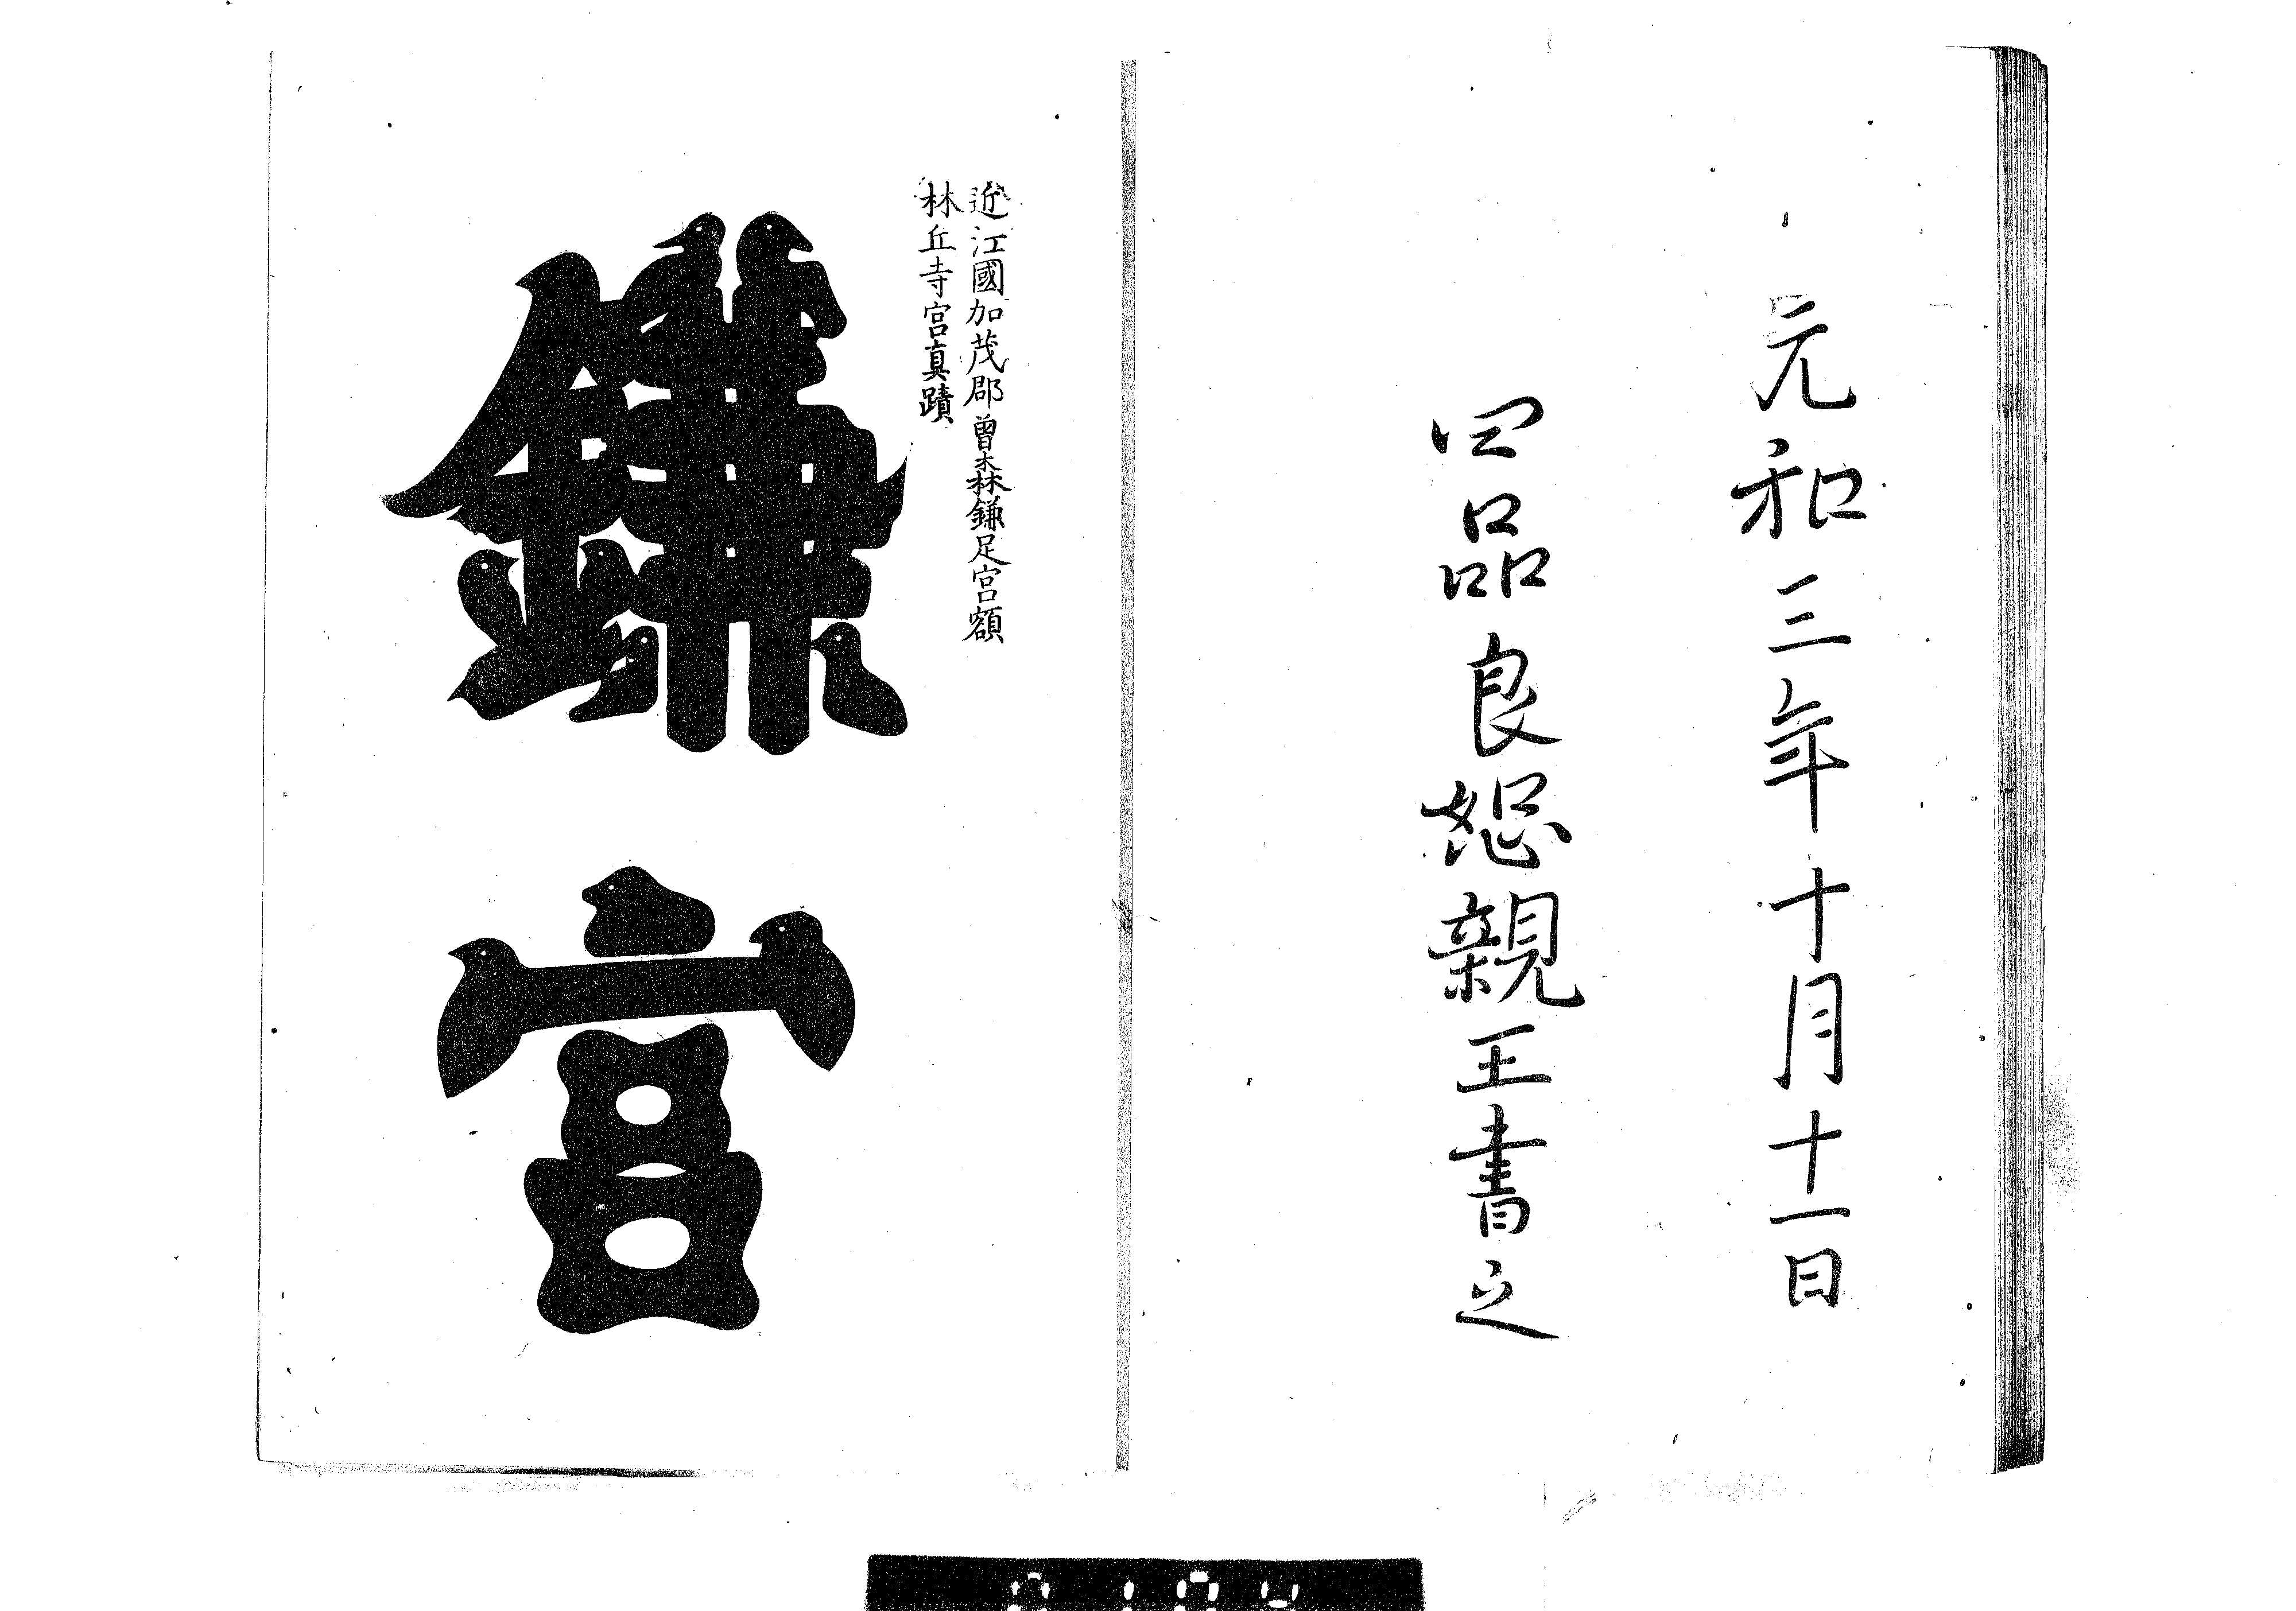 元和三年十月十一日
四品良恕親王書之
近江國加茂郡曽森鎌足宮額
林丘寺宮真蹟
鎌宮